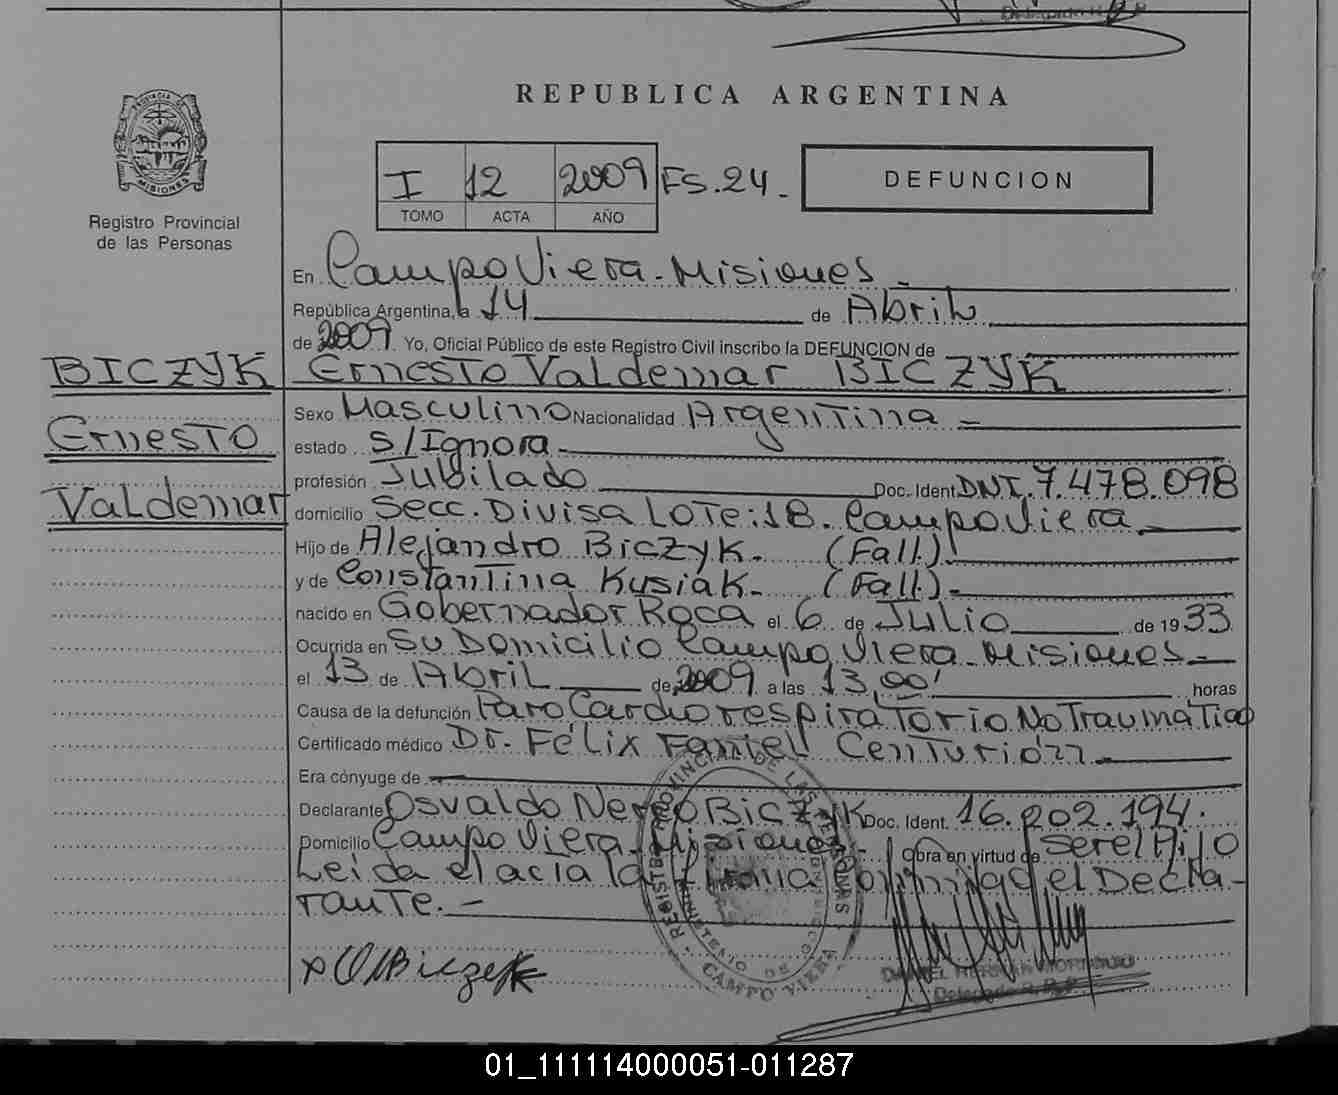 REPUBLICA ARGENTINA
PROVINCIA DE
MISIONES
Registro Provincial
de las Personas
I 12 2009 FS.24.-
TOMO ACTA AÑO
DEFUNCION
En Campo Viera - Misiones.-
República Argentina, a 14 de Abril
de 2009. Yo, Oficial Público de este Registro Civil inscribo la DEFUNCION de
BICZYK Ernesto Valdemar BICZYK
Ernesto
Valdemar
Sexo Masculino Nacionalidad Argentina -
estado s/Ignora.
profesión Jubilado Doc. Ident. DNI. 7.478.098
domicilio Secc. Divisa LOTe:18. Campo Viera
Hijo de Alejandro Biczyk. (Fall.)
y de Constantina Kusiak. (Fall.)
nacido en Gobernador Roca el 6 de Julio de 1933
Ocurrida en Su Domicilio Campo Viera - Misiones -
el 13 de Abril de 2009 a las 13,00' horas
Causa de la defunción Paro Cardiorespiratorio No Traumatico
Certificado médico Dr. Félix Centurión.
Era cónyuge de
Declarante Osvaldo Biczyk Doc. Ident. 16.202.194.
Domicilio Campo Viera - Misiones. Obra en virtud de Ser el Hijo
Leida el acta la Firma el Decla-
rante. -
REGISTRO PROVINCIAL DE LAS PERSONAS
MINISTERIO DE GOBIERNO
CAMPO VIERA
Delegado R. P. P.
01_111114000051-011287